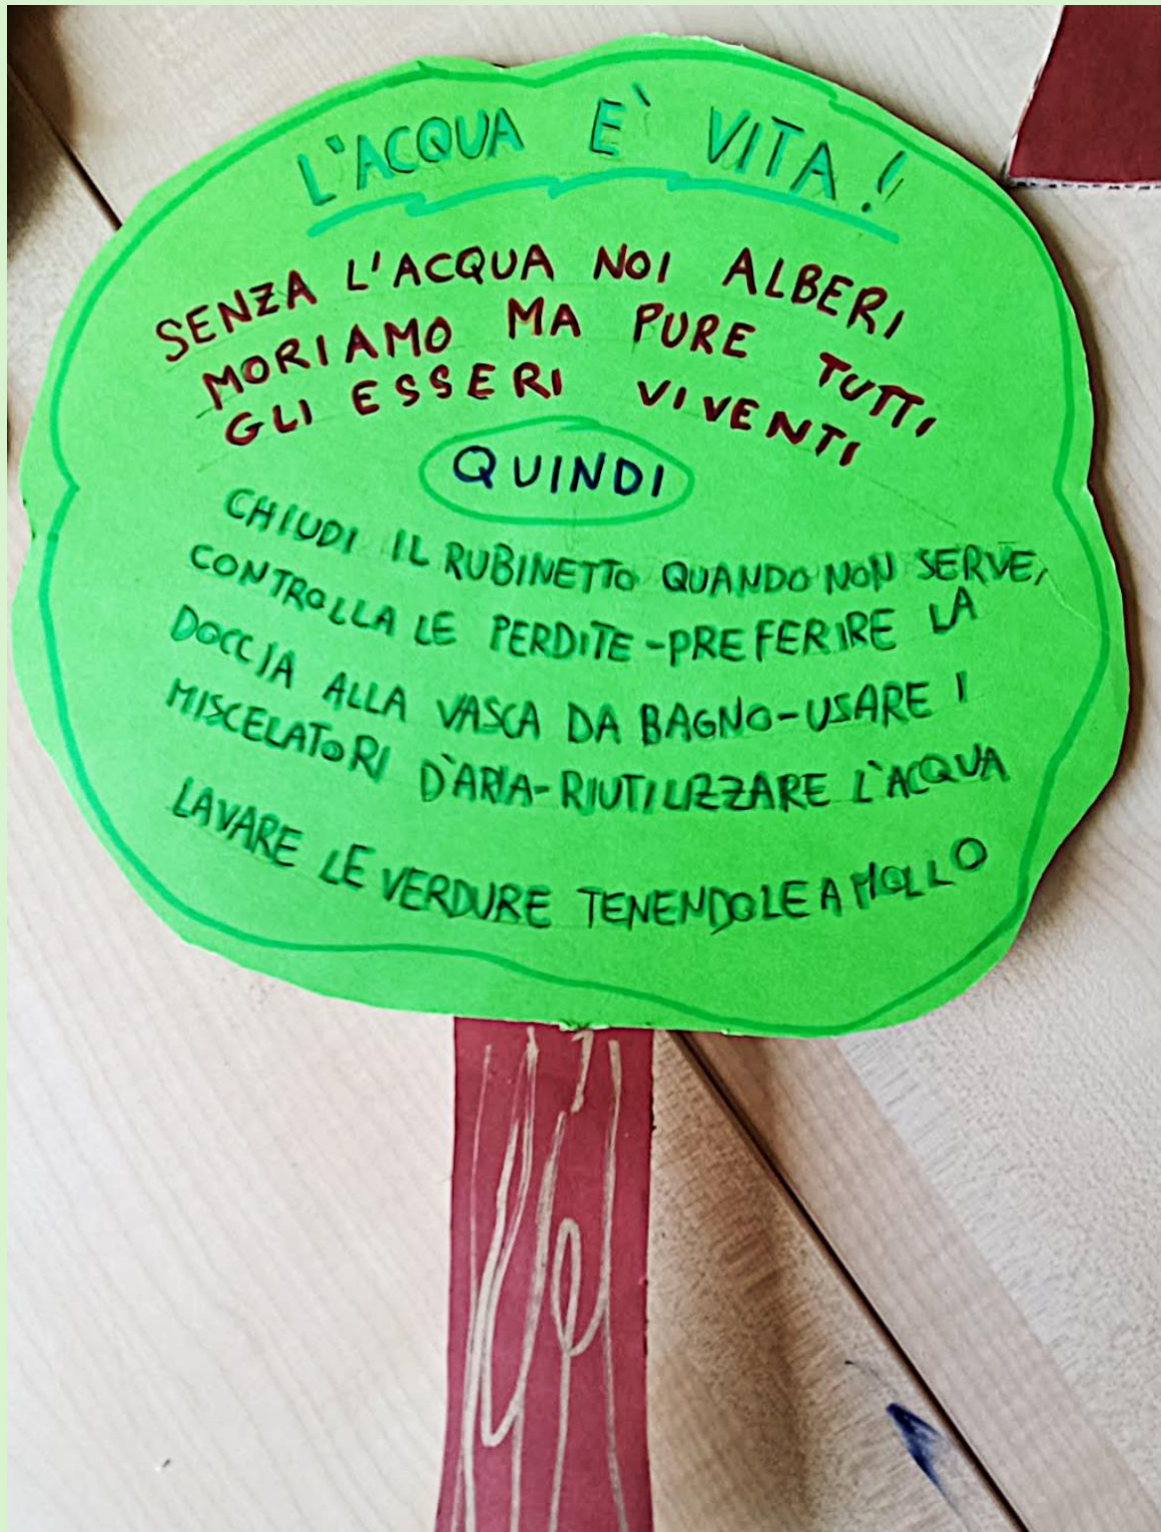 L'ACQUA E' VITA!
SENZA L'ACQUA NOI ALBERI
MORIAMO MA PURE TUTTI
GLI ESSERI VIVENTI
QUINDI
CHIUDI IL RUBINETTO QUANDO NON SERVE,
CONTROLLA LE PERDITE-PREFERIRE LA
DOCCIA ALLA VASCA DA BAGNO-USARE I
MISCELATORI D'ARIA-RIUTILIZZARE L'ACQUA
LAVARE LE VERDURE TENENDOLE A MOLLO